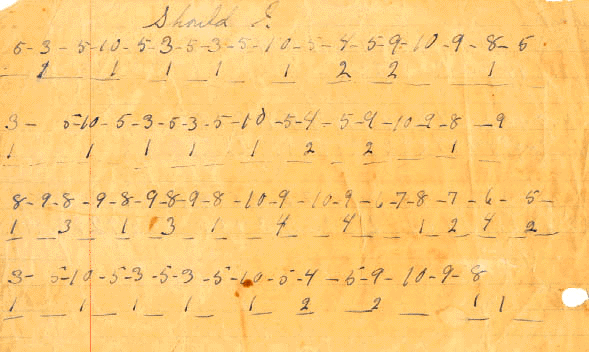 Should I
5-3-5-10-5-3-5-3-5-10-5-4-5-9-10-9-8-5
1 1 1 1 1 2 2 1
3- 5-10-5-3-5-3-5-10-5-4-5-9-10-9-8-9
1 1 1 1 1 2 2 1
8-9-8-9-8-9-8-9-8-10-9-10-9-6-7-8-7-6-5-
1 3 1 3 1 4 4 1 2 4 2
3- 5-10-5-3-5-3-5-10-5-4-5-9-10-9-8
1 1 1 1 1 2 2 1 1